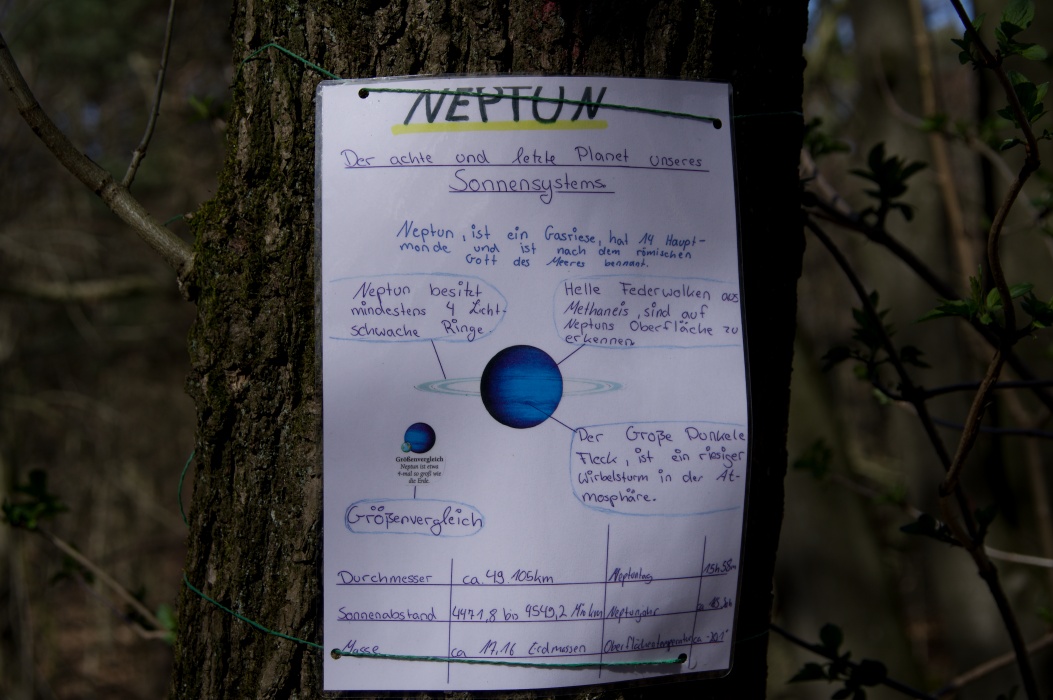 NEPTUN
Der achte und letzte Planet unseres
Sonnensystems.
Neptun, ist ein Gasriese, hat 14 Haupt-
monde und ist nach dem römischen
Gott des Meeres benannt.
Neptun besitzt
mindestens 4 Licht-
schwache Ringe.
Helle Federwolken aus
Methaneis, sind auf
Neptuns Oberfläche zu
erkennen.
Der Große Dunkele
Fleck, ist ein riesiger
Wirbelsturm in der At-
mosphäre.
Größenvergleich
Neptun ist etwa
4-mal so groß wie
die Erde.
Größenvergleich
Durchmesser ca. 49.105km Neptuntag 15h 58m
Sonnenabstand 4471,8 bis 4549,2 Mio km Neptunjahr
Masse ca 17,16 Erdmassen Oberflächentemperatur ca -201°